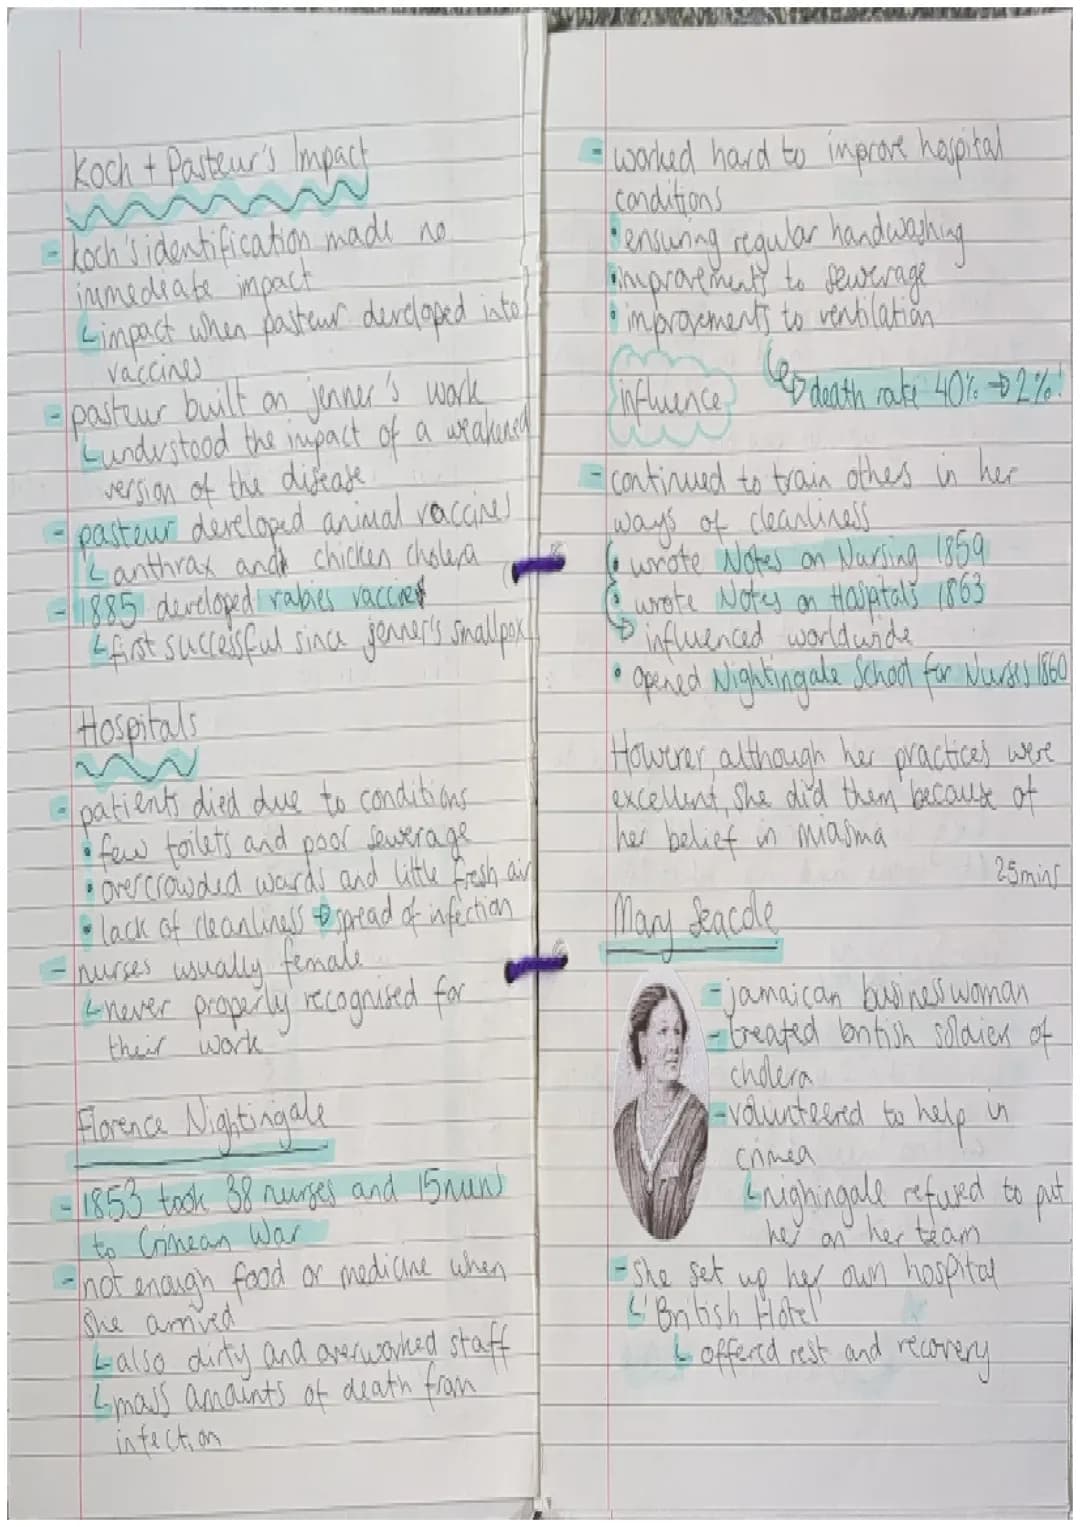 Koch + Pasteur's Impact
- koch's identification made no
immediate impact
↳ impact when pasteur developed into
vaccines
- pasteur built on jenner's work
↳ understood the impact of a weakened
version of the disease
- pasteur developed animal vaccines
↳ anthrax and chicken cholera
- 1885 developed rabies vaccine
↳ first successful since jenner's smallpox
Hospitals
- patients died due to conditions
• few toilets and poor sewerage
• overcrowded wards and little fresh air
• lack of cleanliness → spread of infection
- nurses usually female
↳ never properly recognised for
their work
Florence Nightingale
- 1853 took 38 nurses and 15 nuns
to Crimean War
- not enough food or medicine when
she arrived
↳ also dirty and overworked staff
↳ mass amounts of death from
infection
- worked hard to improve hospital
conditions
• ensuring regular handwashing
• improvements to sewerage
• improvements to ventilation
↳ death rate 40% → 2%!
influence
- continued to train others in her
ways of cleanliness
• wrote Notes on Nursing 1859
• wrote Notes on Hospitals 1863
→ influenced worldwide
• opened Nightingale School for Nurses 1860
However, although her practices were
excellent, she did them because of
her belief in miasma
25mins
Mary Seacole
- jamaican businesswoman
- treated british soldiers of
cholera
- volunteered to help in
crimea
↳ nighingale refused to put
her on her team
- she set up her own hospital
↳ 'British Hotel'
↳ offered rest and recovery